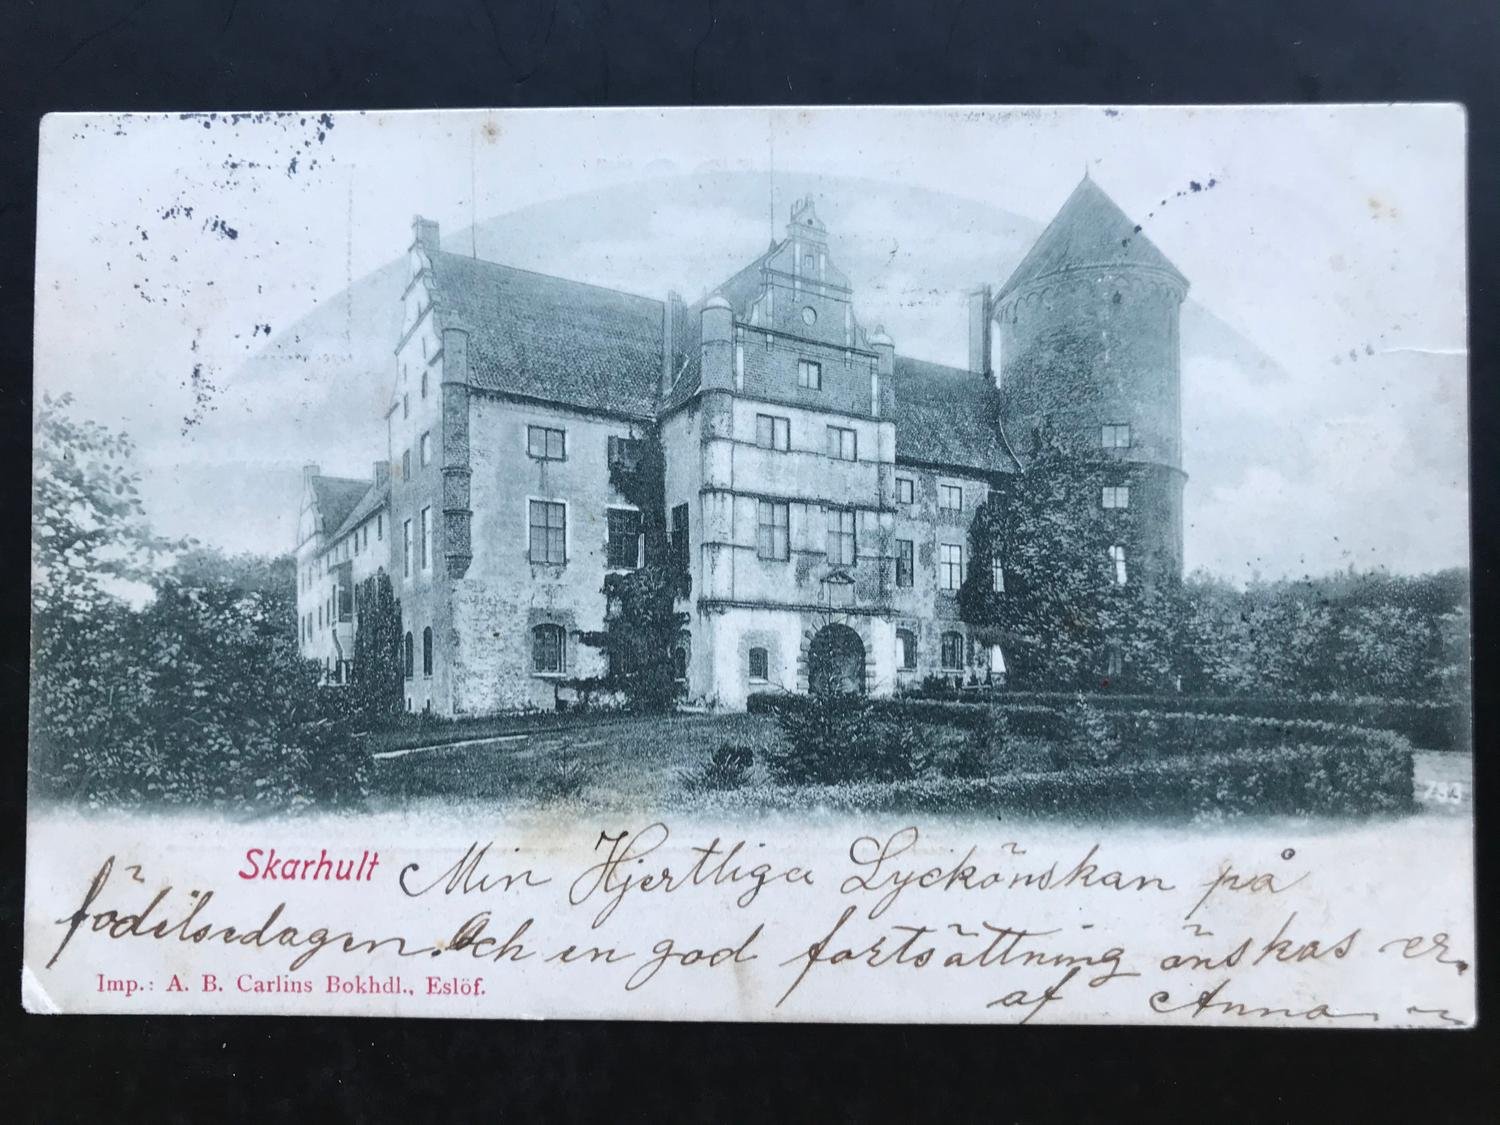 Skarhult Min Hjertliga Lyckönskan på
födelsedagen. Och en god fortsättning önskas er.
Imp.: A. B. Carlins Bokhdl., Eslöf.
af Anna